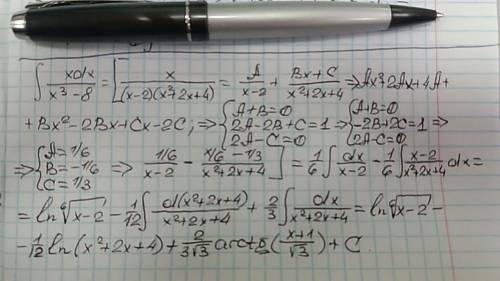 ∫ xdx/(x³-8) = [ x/((x-2)(x²+2x+4)) = A/(x-2) + (Bx+C)/(x²+2x+4) ⇒ Ax²+2Ax+4A+
+Bx²-2Bx+Cx-2C; ⇒ { A+B=0; 2A-2B+C=1; 2A-C=0 ⇒ { A+B=0; -2B+2C=1; 2A-C=0 ⇒
⇒ { A=1/6; B=-1/6; C=1/3 ⇒ (1/6)/(x-2) - (x/6-1/3)/(x²+2x+4) ] = 1/6 ∫ dx/(x-2) - 1/6 ∫ (x-2)/(x²+2x+4) dx =
= ln ⁶√(x-2) - 1/12 ∫ d(x²+2x+4)/(x²+2x+4) + 2/3 ∫ dx/(x²+2x+4) = ln ⁶√(x-2) -
- 1/12 ln(x²+2x+4) + 2/(3√3) arctg((x+1)/√3) + C.